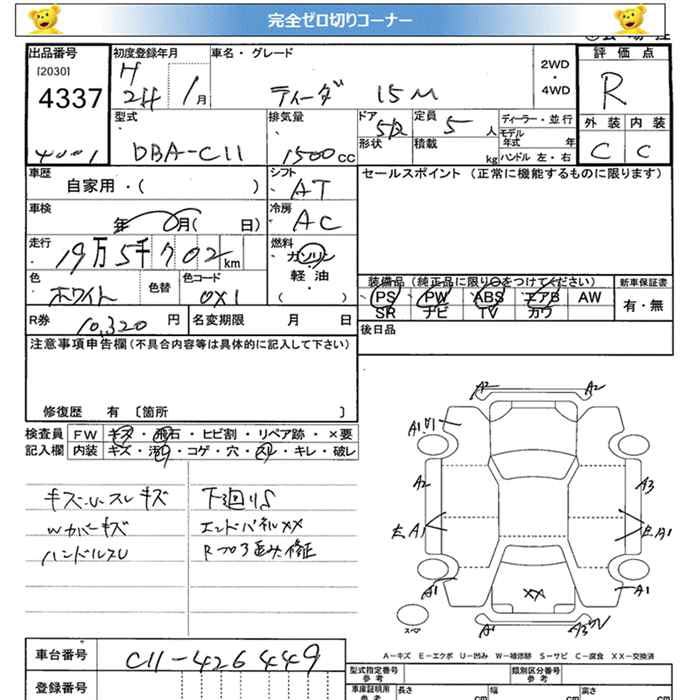 完全ゼロ切りコーナー
出品番号 初度登録年月 車名・グレード 2WD・4WD 評価点
[2030] H R
4337 24 1月 ティーダ 15M 外装 内装
型式 排気量 ドア 5D 定員 5人 ディーラー・並行 C C
4001 DBA-C11 1500CC 形状 積載 kg モデル年式 年
ハンドル 左・右
車歴 シフト セールスポイント (正常に機能するものに限ります)
自家用・( ) AT
車検 冷房
年 月( 日) AC
走行 燃料
19万5千702km ガソリン
軽・油
( )
色 色替 色コード 装備品 (純正品に限り○をつけてください) 新車保証書
ホワイト 0X1 PS PW ABS エアB AW 有・無
SR ナビ TV カワ
R券 10,320円 名変期限 月 日 後日品
注意事項申告欄(不具合内容等は具体的に記入して下さい)
修復歴 有 〔箇所 〕
検査員 FW キズ・飛石・ヒビ割・リペア跡・×要
記入欄 内装 キズ・汚れ・コゲ・穴・スレ・キレ・破レ
下廻りS
Wカバーキズ エンドパネルXX
A2 A2
A1 U1
A2 A3
A1 E,A1
A1 XX A1
スペア A1
A-キズ E-エクボ U-凹み W-補修跡 S-サビ C-腐食 XX-交換済
車台番号 C11-426449
登録番号 型式指定番号 参考 類別区分番号 参考
車庫証明用 参考 長さ cm 幅 cm 高さ cm